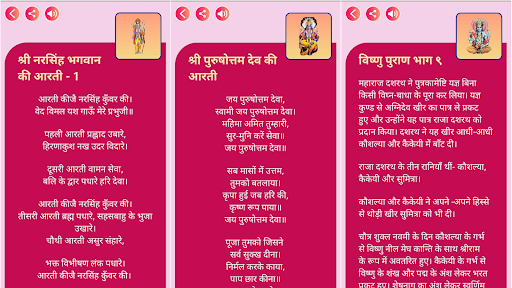 श्री नरसिंह भगवान
की आरती - 1
आरती कीजै नरसिंह कुँवर की।
वेद विमल यश गाऊँ मेरे प्रभुजी॥
पहली आरती प्रह्लाद उबारे,
हिरणाकुश नख उदर विदारे।
दूसरी आरती वामन सेवा,
बलि के द्वार पधारे हरि देवा।
आरती कीजै नरसिंह कुँवर की।
तीसरी आरती ब्रह्म पधारे, सहसबाहु के भुजा
उखारे।
चौथी आरती असुर संहारे,
भक्त विभीषण लंक पधारे।
आरती कीजै नरसिंह कुँवर की।
श्री पुरुषोत्तम देव की
आरती
जय पुरुषोत्तम देवा,
स्वामी जय पुरुषोत्तम देवा।
महिमा अमित तुम्हारी,
सुर-मुनि करें सेवा॥
जय पुरुषोत्तम देवा॥
सब मासों में उत्तम,
तुमको बतलाया।
कृपा हुई जब हरि की,
कृष्ण रूप पाया॥
जय पुरुषोत्तम देवा॥
पूजा तुमको जिसने
सर्व सुक्ख दीना।
निर्मल करके काया,
पाप छार कीना॥
विष्णु पुराण भाग ९
महाराज दशरथ ने पुत्रकामेष्टि यज्ञ बिना
किसी विघ्न-बाधा के पूरा कर लिया। यज्ञ
कुण्ड से अग्निदेव खीर का पात्र ले प्रकट
हुए और उन्होंने यह पात्र राजा दशरथ को
प्रदान किया। दशरथ ने यह खीर आधी-आधी
कौशल्या और कैकेयी में बाँट दी।
राजा दशरथ के तीन रानियाँ थीं- कौशल्या,
कैकेयी और सुमित्रा।
कौशल्या और कैकेयी ने अपने -अपने हिस्से
से थोड़ी खीर सुमित्रा को भी दी।
चौत्र शुक्ल नवमी के दिन कौशल्या के गर्भ
से विष्णु नील मेघ कान्ति के साथ श्रीराम
के रूप में अवतरित हुए। कैकेयी के गर्भ से
विष्णु के शंख और पद्म के अंश लेकर भरत
प्रकट हुए। शेषनाग का अंश लेकर स्वर्णिम